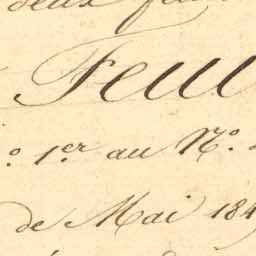 deux
Feui
º 1er au Nº
de Mai 184